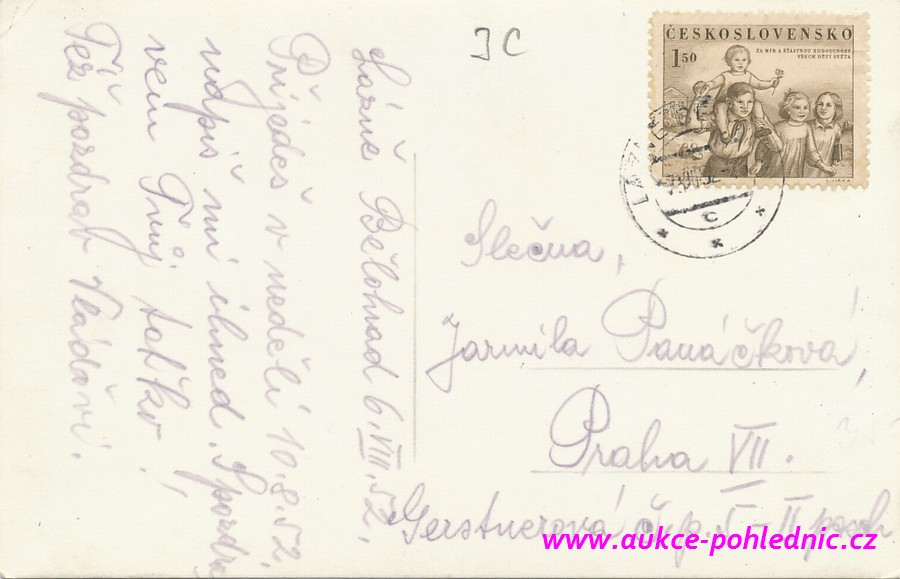 JC
ČESKOSLOVENSKO
ZA MÍR A ŠŤASTNOU BUDOUCNOST
VŠECH DĚTÍ SVĚTA
1,50
Lázně Bělohrad 6.VIII.52.
Přijedeš v neděli 10.8.52.
nápiš mi ihned. S pozdra
vem Tvůj taťka,
Též pozdrav Vláďovi.
Slečna,
Jarmila Panáčková,
Praha VII.
Gerstnerová čp. 5 - II posch.
www.aukce-pohlednic.cz